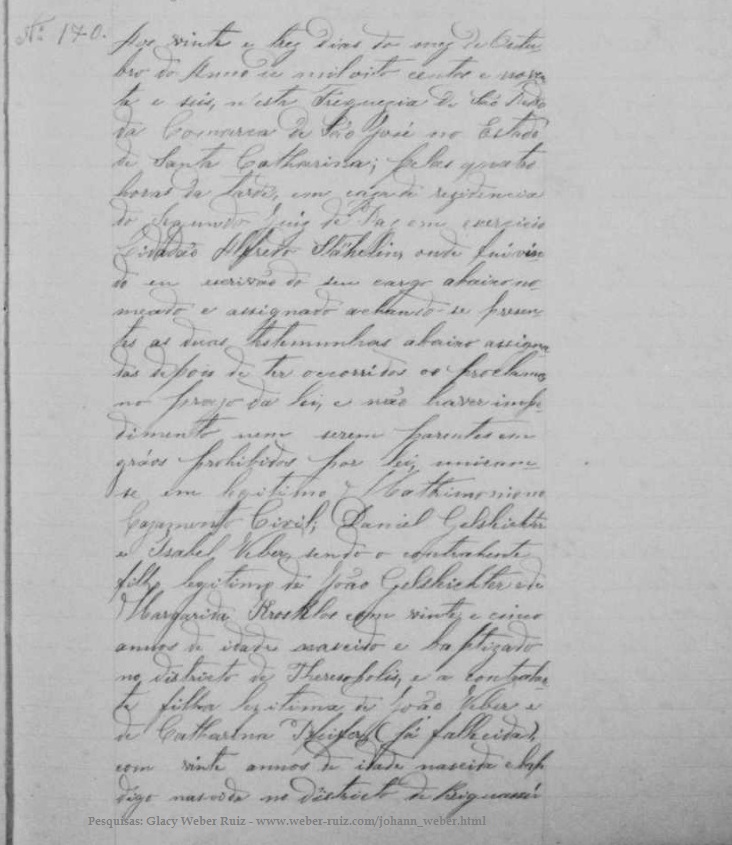 Nº 170.
Aos vinte e trez dias do mez de Outu
bro do Anno de mil oito centos e noven
ta e seis, n'esta Freguezia de São Pedro
da Comarca de São José no Estado
de Santa Catharina; pelas quatro
horas da tarde, em caza de rezidencia
do Segundo Juiz de Paz em exercicio
Cidadão Alfredo Stähelin, onde fui vin
do eu escrivão do seu cargo abaixo no
meado e assignado achando-se presen
tes as duas testemunhas abaixo assigna
das depois de ter occorridos os proclamas
no prazo da lei, e não haver impe
dimento nem serem parentes em
gráos prohibidos por lei, uniram-
se em legitimo Mathimonio no
Cazamento Civil; Daniel Gelshichter
e Isabel Veber, sendo o contrahente
filho legitimo de João Gelshichter e de
Margarida com vinte e cinco
annos de idade nascido e baptizado
no districto de Theresopolis, e a contrahen
te filha legitima de João Veber e
de Catharina (já fallecida),
com vinte annos de idade nascida e bap
digo nascida no Districto de Biguassú
Pesquisas: Glacy Weber Ruiz - www.weber-ruiz.com/johann_weber.html